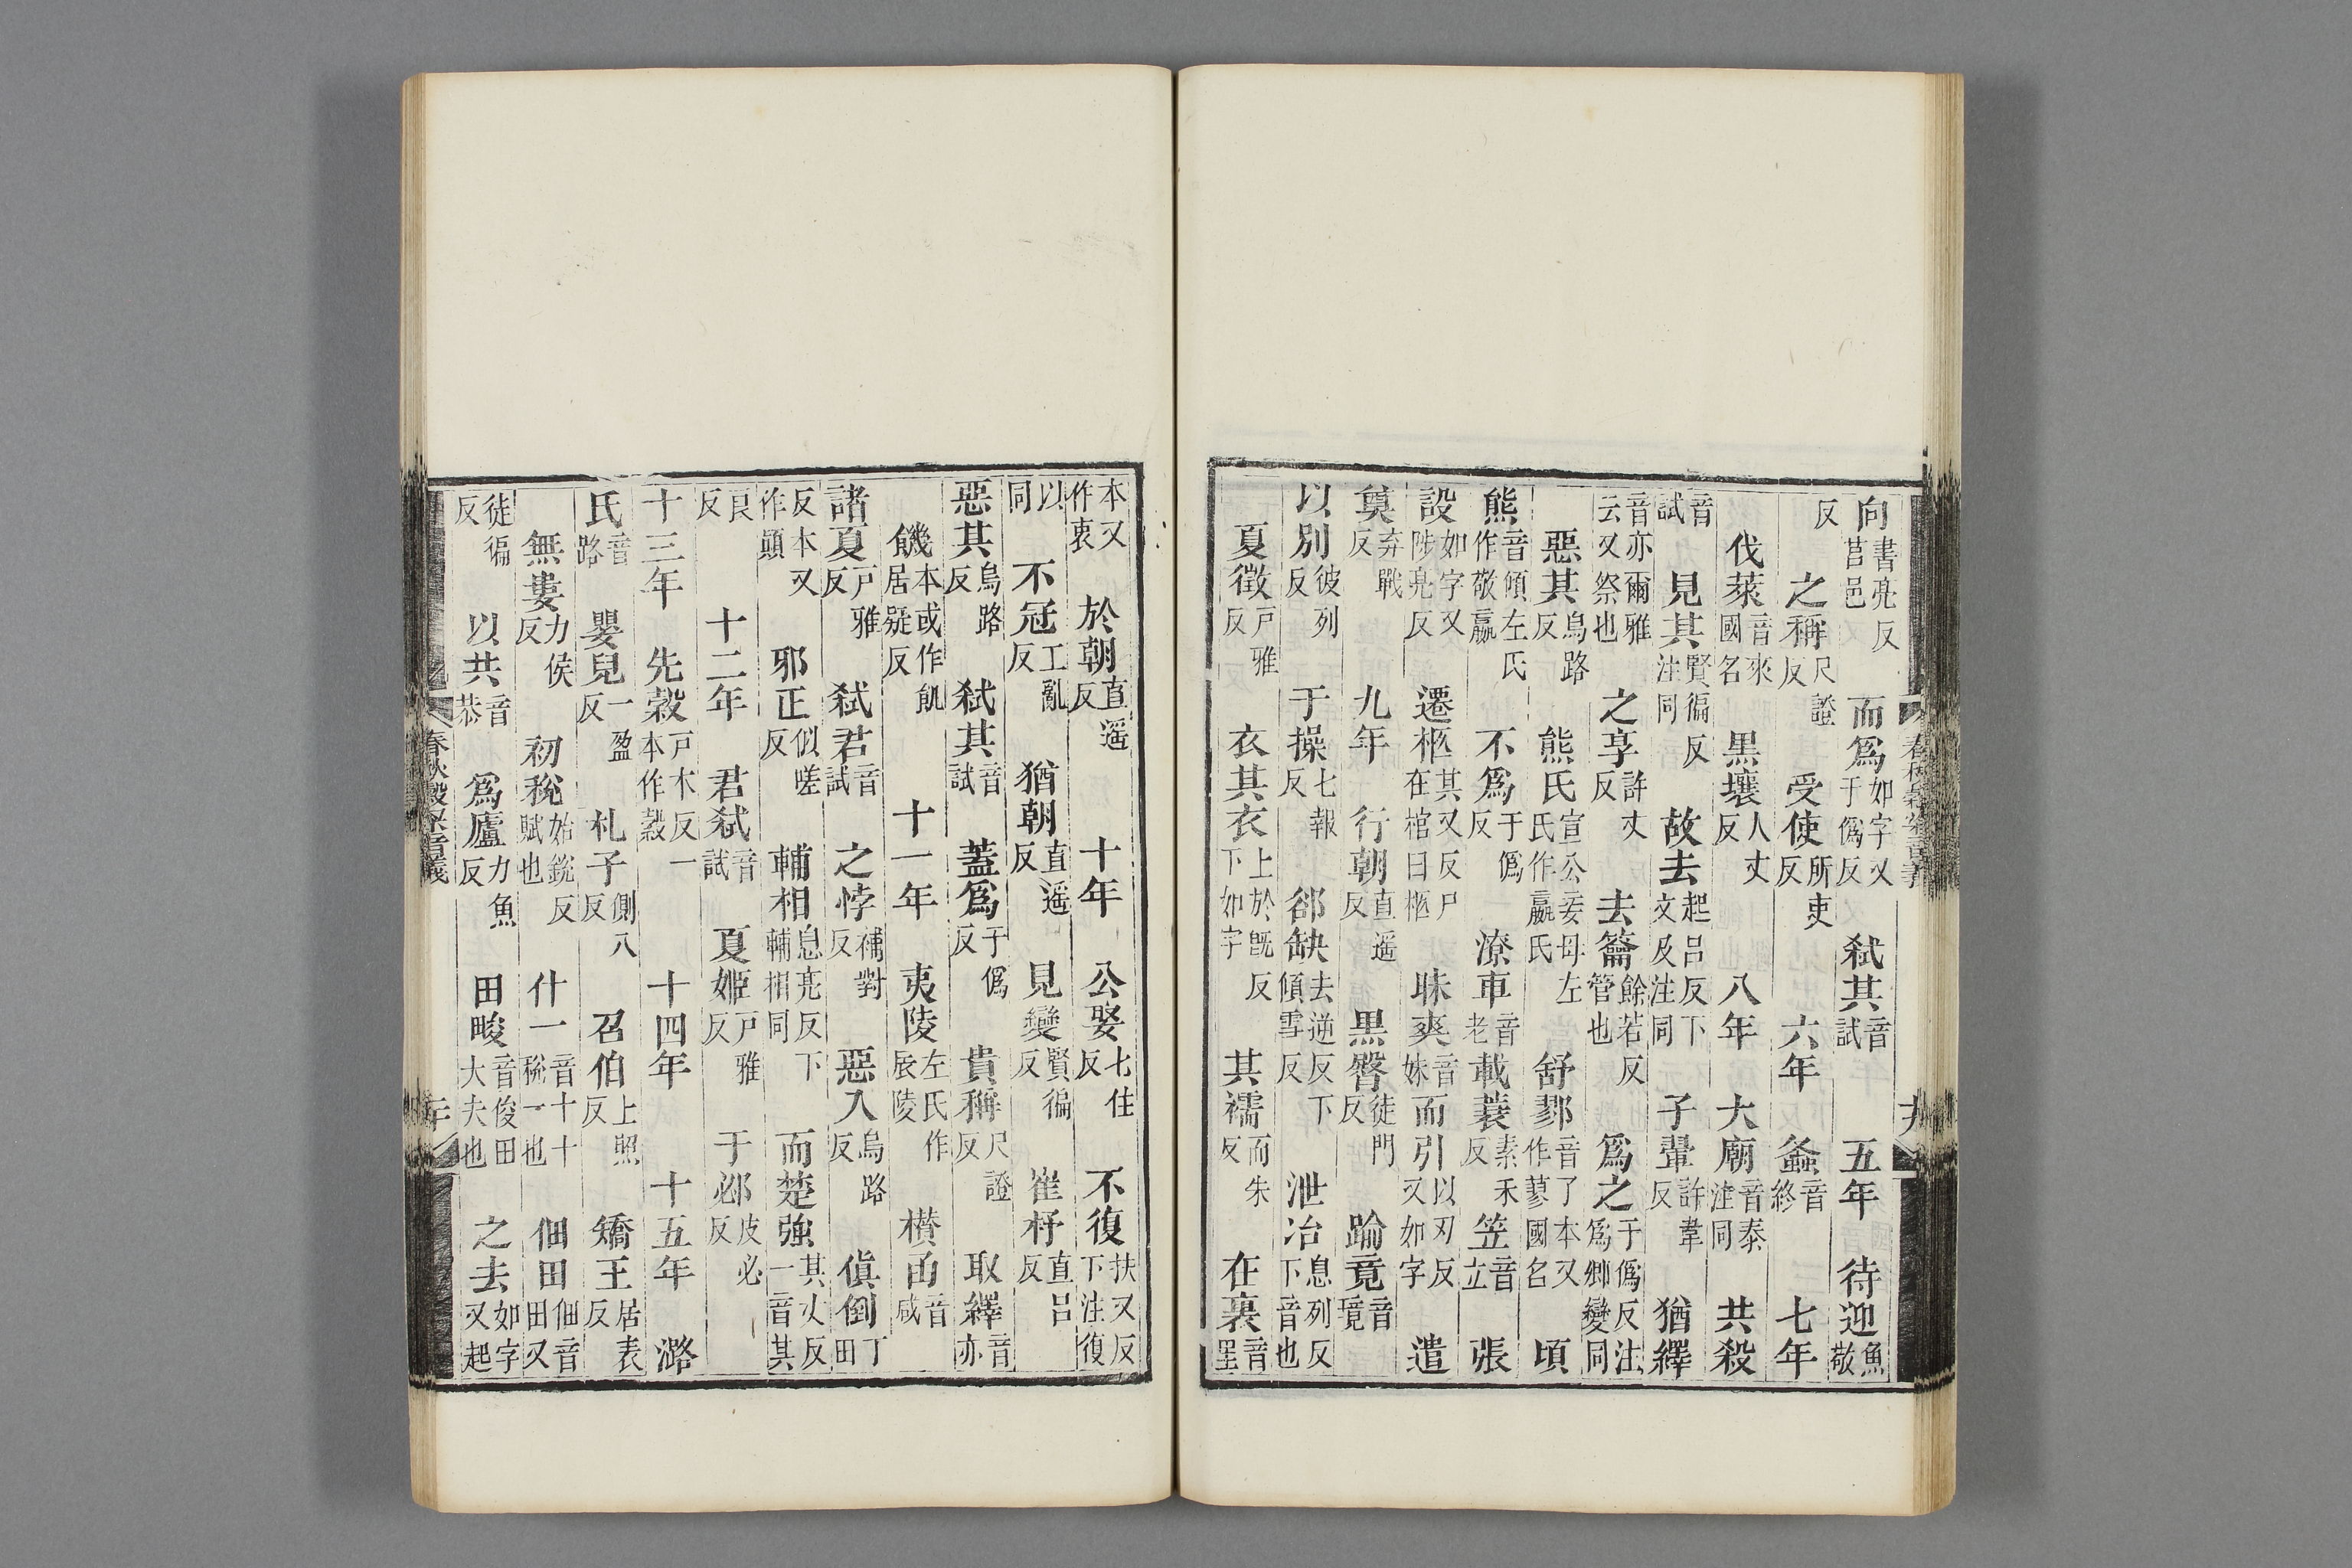 向書亮反莒邑 而爲如字又于僞反 弑其音試 五年 待迎魚敬
反 之稱尺證反 受使所吏反 六年 螽音終 七年
伐萊音來國名 黒壤人丈反 八年 大廟音泰注同 共殺
音試 見其賢徧反注同 故去起呂反下文及注同 子翬許韋反 猶繹
音亦爾雅云又祭也 之享許丈反 去籥餘若反管也 爲之于僞反注爲卿變同
惡其烏路反 熊氏宣公妾母左氏作嬴氏 舒鄝音了本又作蓼國名 頃
熊音傾左氏作敬嬴 不爲于僞反 潦車音老 載蓑素禾反 笠音立 張
設如字又陟亮反 遷柩其又反尸在棺曰柩 昧爽音妹 而引以刃反又如字 遣
奠弃戰反 九年 行朝直遥反 黒臀徒門反 踰竟音境
以別彼列反 于操七報反 郤缺去逆反下傾雪反 泄冶息列反下音也
夏徵戸雅反 衣其衣上於旣反下如字 其襦而朱反 在裏音里
春秋穀梁音義 十九
本又作衷 於朝直遥反 十年 公娶七住反 不復扶又反下注復
以同 不冠工亂反 猶朝直遥反 見變賢徧反 崔杼直呂反
惡其烏路反 弑其音試 蓋爲于僞反 貴稱尺證反 取繹音亦
饑本或作飢居疑反 十一年 夷陵左氏作辰陵 欑函音咸
諸夏戸雅反 弑君音試 之悖補對反 惡入烏路反 傎倒丁田
反本又作顚 邪正似嗟反 輔相息亮反下輔相同 而楚強其丈反一音其
艮反 十二年 君弑音試 夏姬戸雅反 于邲皮必反
十三年 先縠戸木反一本作穀 十四年 十五年 潞
氏音路 嬰兒一盈反 札子側八反 召伯上照反 矯王居表反
無婁力侯反 初稅始銳反賦也 什一音十十稅一也 佃田佃音田又
徒徧反 以共音恭 爲廬力魚反 田畯音俊田大夫也 之去如字又起
春秋穀梁音義 二十